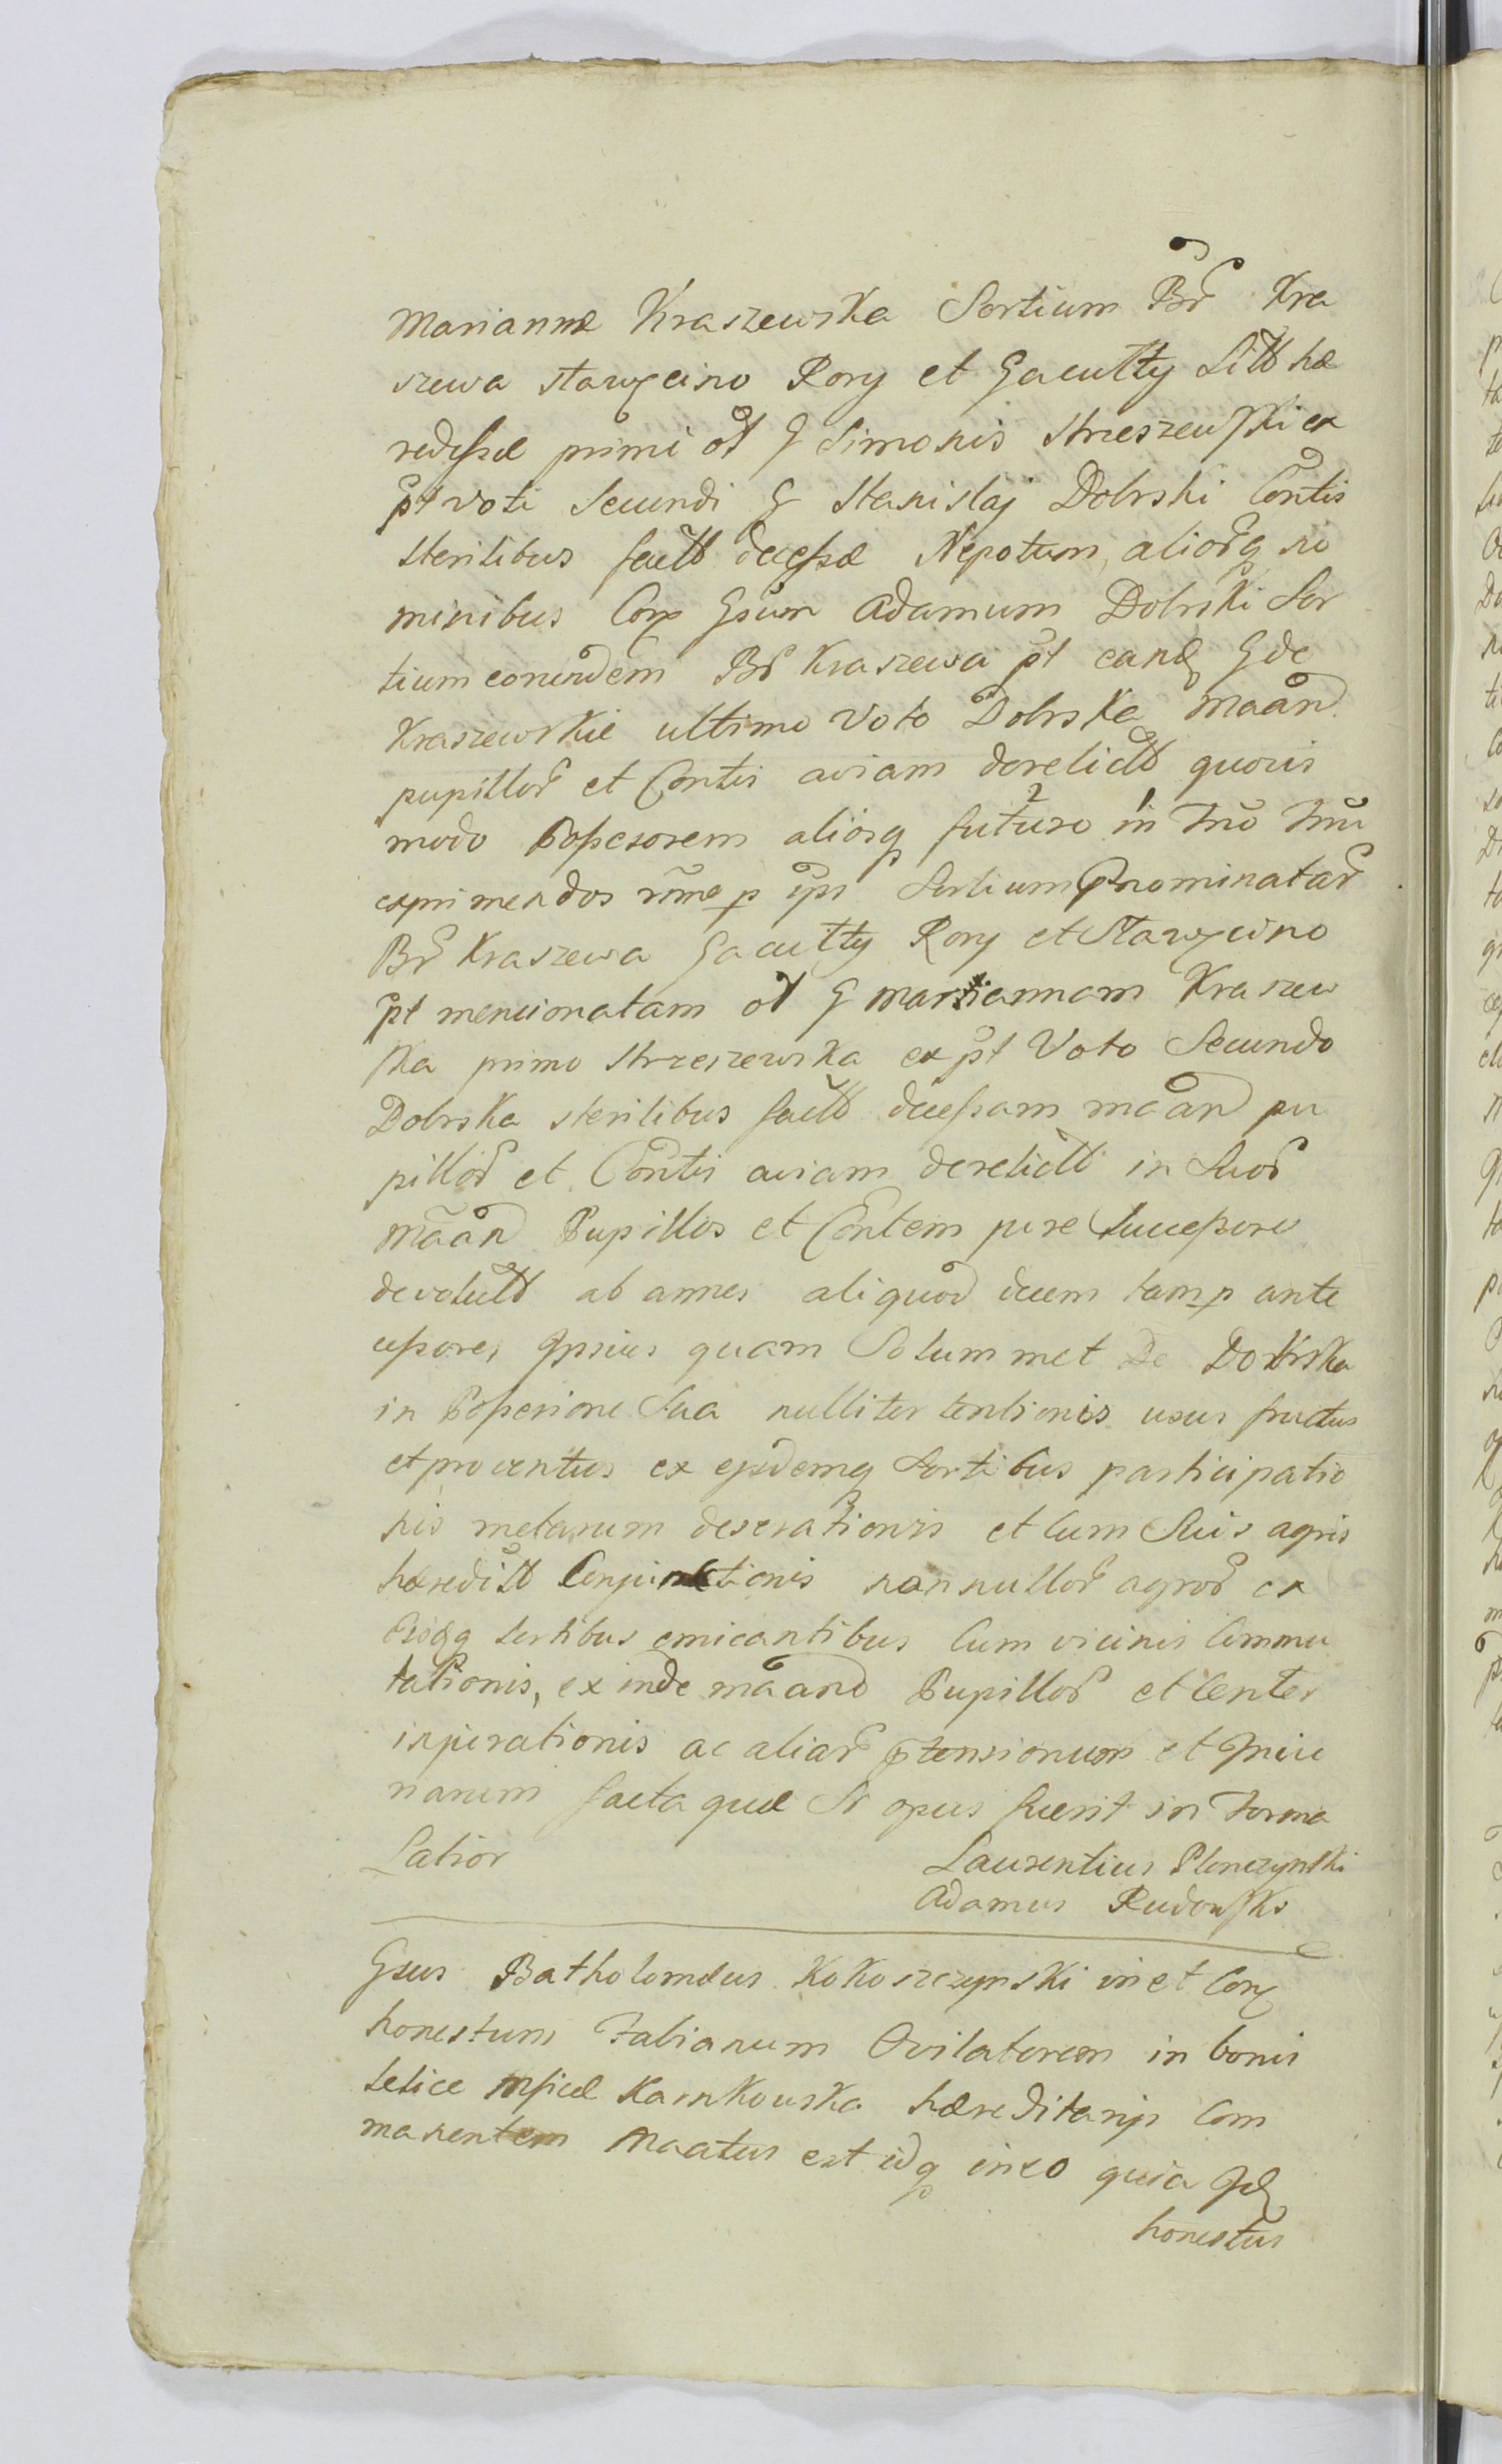 Mariannæ Kraszewska Sortium Br̃ Kra
szewa stawγcino Rory et Gacutty Sitt̃ hæ
redessæ primi ol̃ G Simonis Strzeszewski ex
p̃t voti Secundi G Stanislaj Dobrski Con̄tis
sterilibus fact̃t decessæ Nepotum, alior̃q no
minibus Corγ Gsum Adamum Dobrski Sor
tium eorundem Br̃ Kraszewa p̃t eand G de
Kraszewskie ultimo Voto Dobrska maan̄d
pupillor̃ et Con̄tis aviam derelict̃t quovis
modo Possesorem aliosq futuro in Tn̄o Tn̄u
exprimendos rñe p ipsi Sortium p̃nominatar̃
Br̃ Kraszewa Gacutty Rory et Stawγcino
p̃t mencionatam ol̃ G Mariannam Kraszew
ska primo Strzeszewska ex p̃t Voto Secundo
Dobrska sterilibus fact̃t decessam maan̄d pu
pillor̃ et Con̄tis aviam derelict̃t in Suos̃
maan̄d Pupillos et Con̄tem jure Successivo
devolut̃t ab annes aliquod decem tam p ante
cessores Ipsius quam Solummet De Dobrska
in Possesione Sua nulliter tentionis usus fructus
et proventus ex ejsdemq Sortibus participatio
nis metarum deserationis et Cum Suis agris
hæredit̃t Conjunctionis nonnullor̃ agror̃ ex
Eisdq Sortibus emicantibus Cum vicinis Commu
tationis, ex inde maand Pupillor̃ et Center
injurationis ac aliar̃ p̃tensionum et Injiu
riarum facta quæ Si opus fuerit in Forma
Latior
Laurentius Plonczynski
Adamus Rudowski
Gsus Batholomæus Kokoszczynski in et Corγ
honestum Fabianum Ovilatorem in bonis
Msicæ Karnkowska hæreditarijs Com
manentem Maatus est idq in eo quia Id
honestus